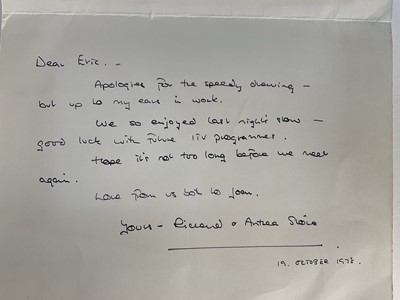 Dear Eric. –
Apologies for the speedy drawing –
but up to my ears in work.
We so enjoyed last night's show –
good luck with future ITV programmes.
Hope it's not too long before we meet
again.
Love from us both to Joan.
Yours – Richard & Anthea
19. OCTOBER 1978.